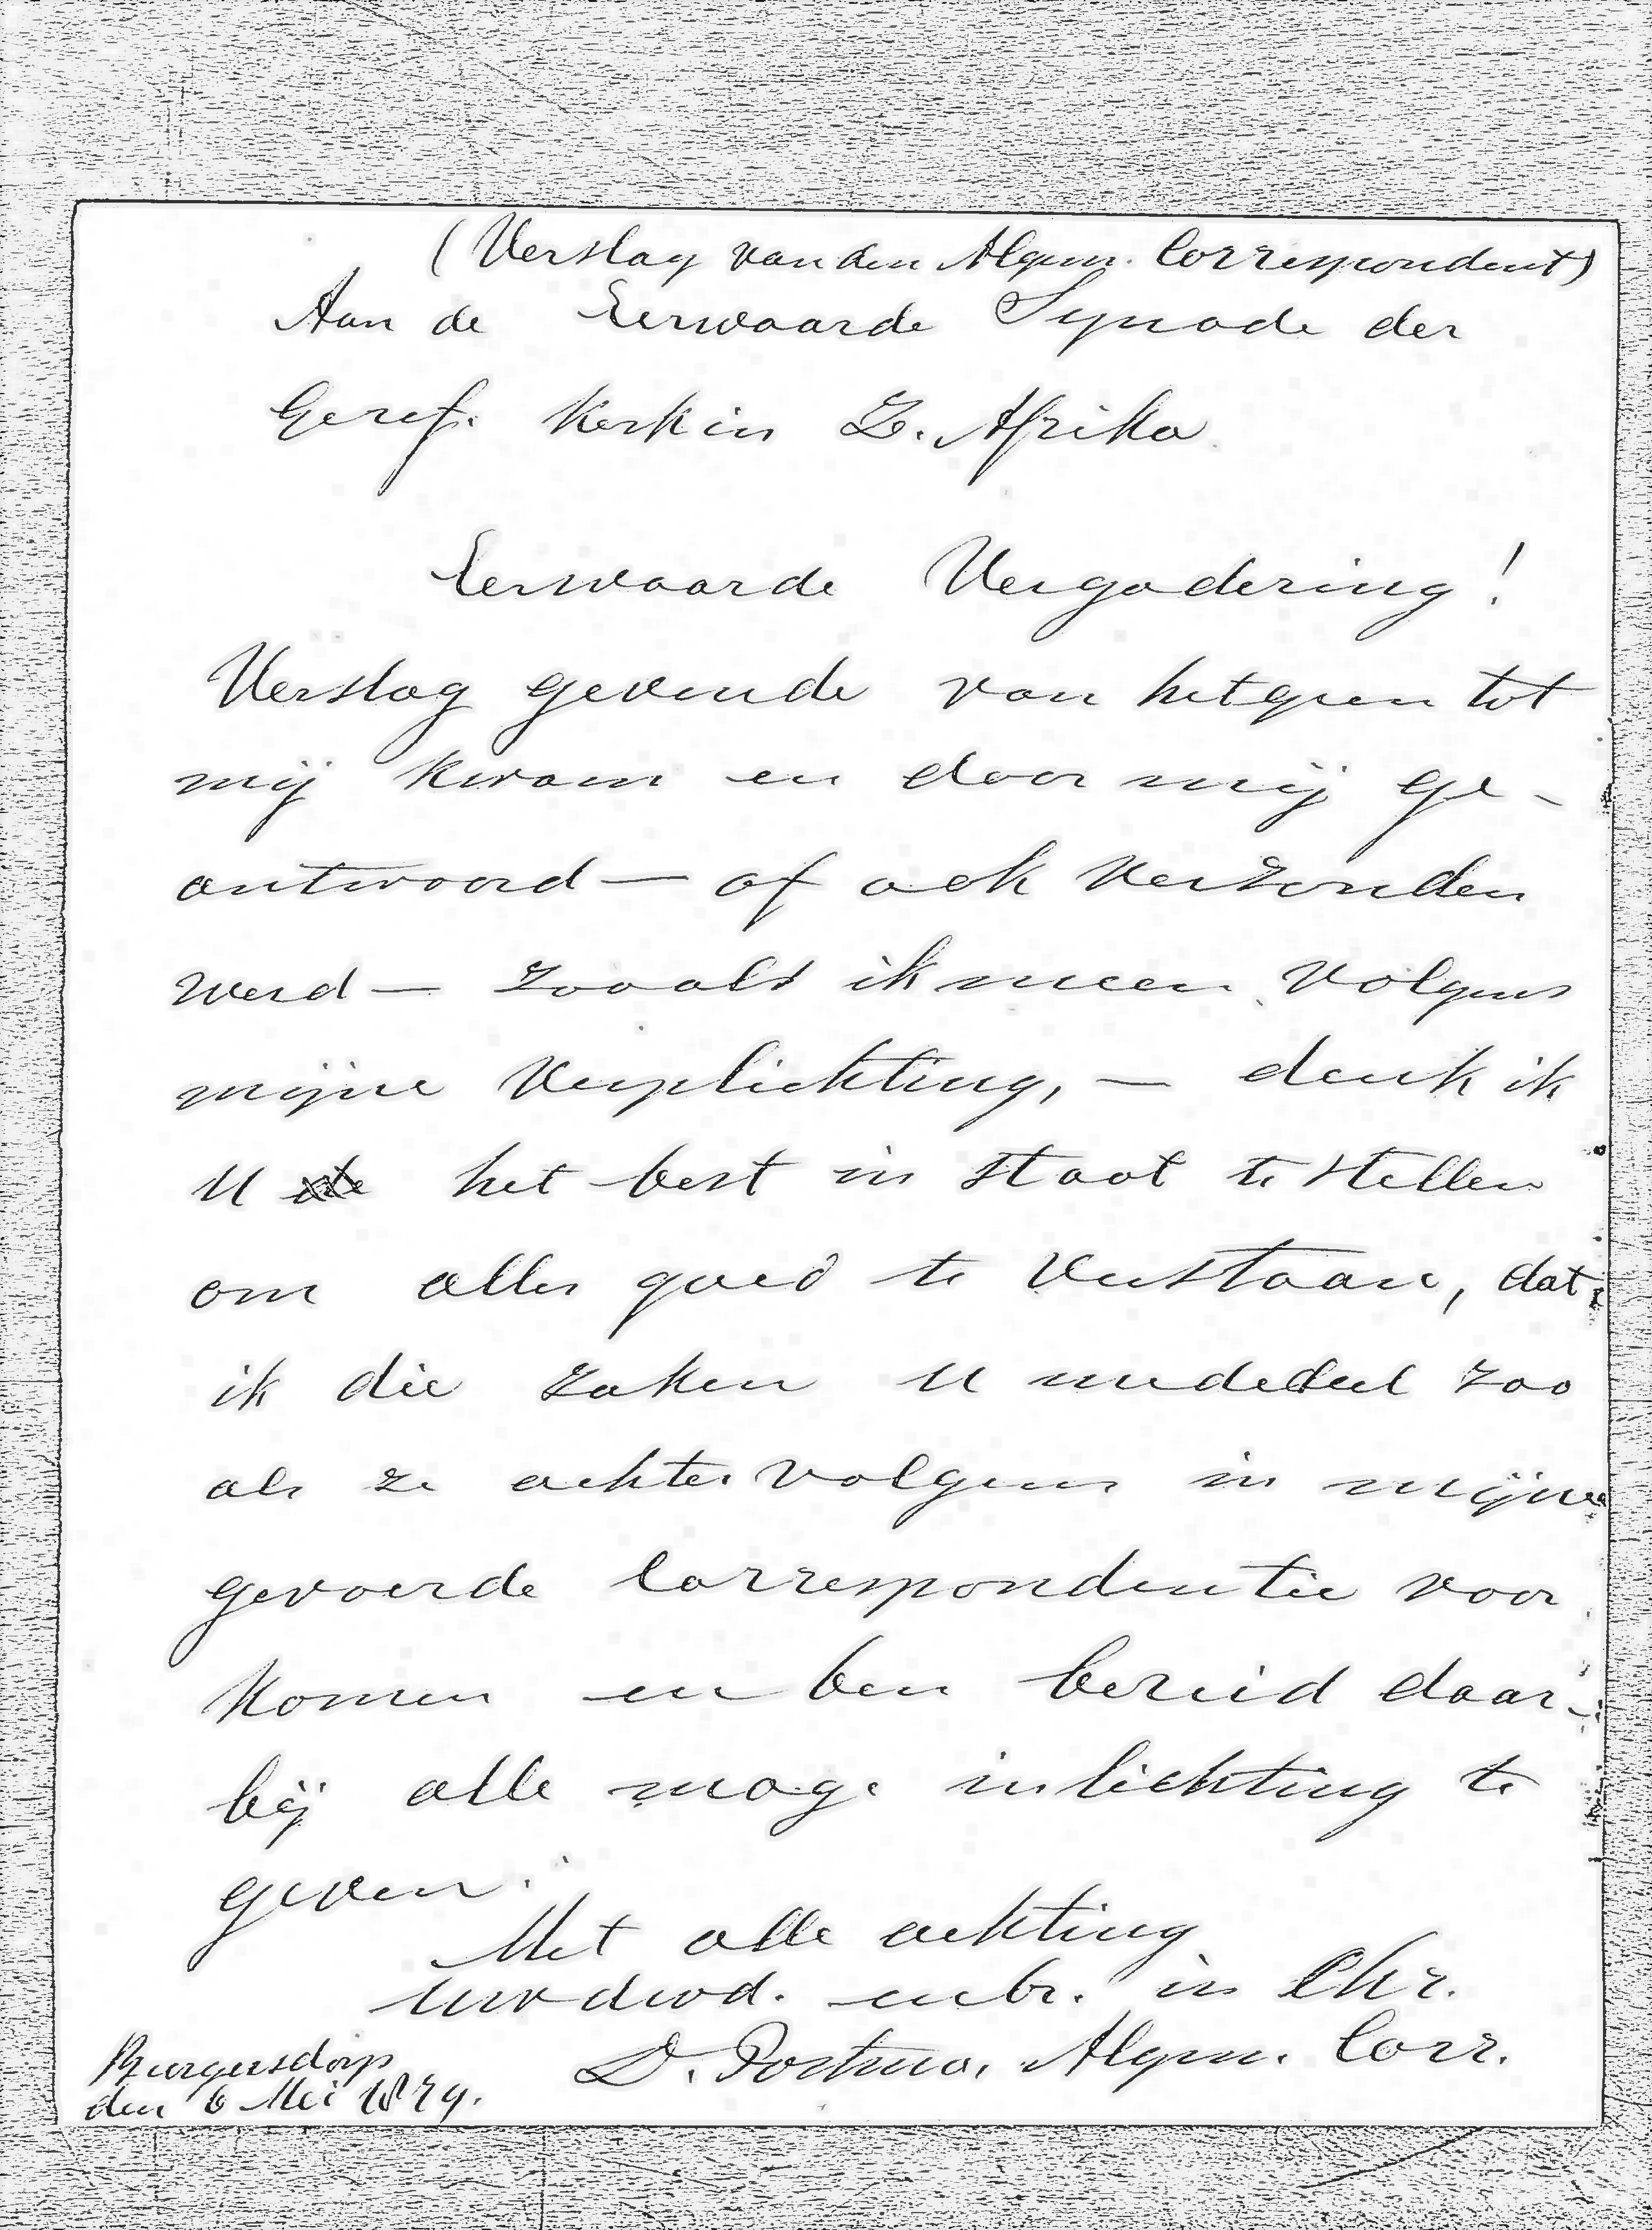 (Verslag van den Algem. Correspondent)
Aan de Eerwaarde Synode der
Geref. Kerk in Z. Afrika
Eerwaarde Vergadering!
Verslag gevende van hetgeen tot
mij kwam en door mij ge-
antwoord — of ook verzonden
werd — zooals ik meen volgens
mijne verplichting, — denk ik
U het best in staat te stellen
om alles goed te verstaan, dat
ik die zaken U mededeel zoo
als ze achtervolgens in mijne
gevoerde Correspondentie voor
komen en ben bereid daar-
bij alle moge inlichting te
geven.
Met alle achting
Uw dwd. en br. in Chr.
D. Postma, Algem. Corr.
Burgersdorp
den 6 Mei 1879.